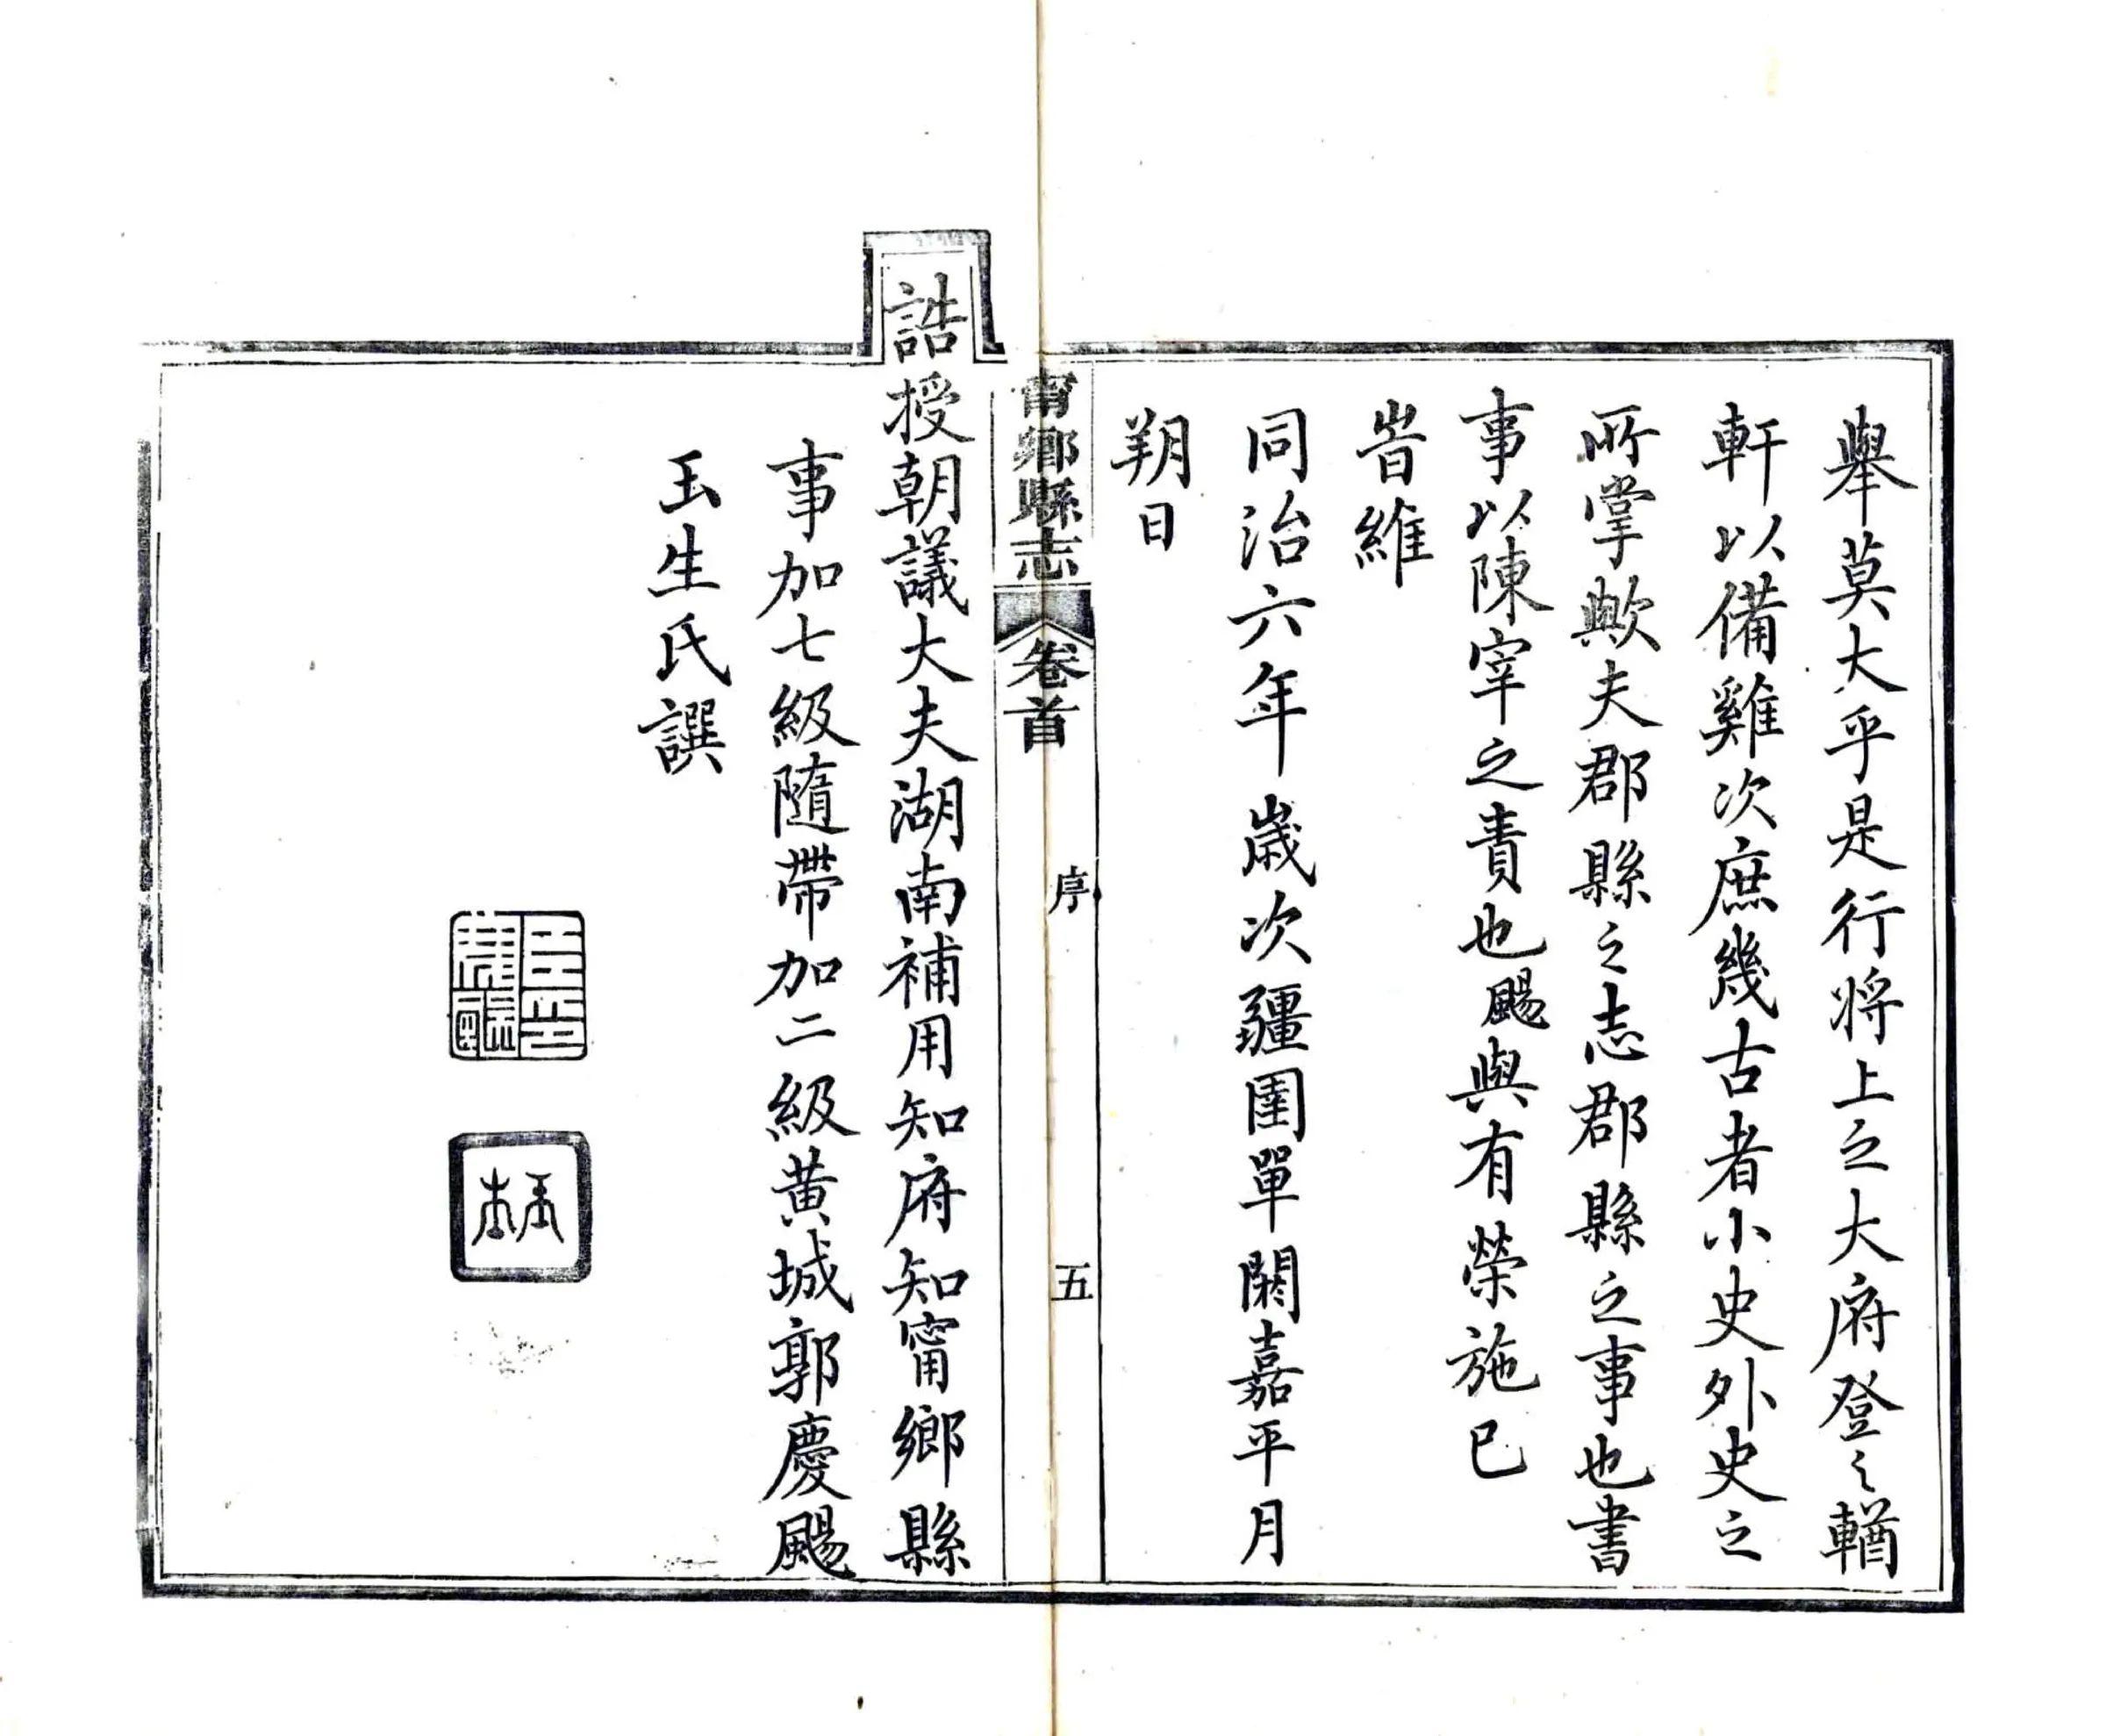 舉莫大乎是行將上之大府登之輶
軒以備雞次庶幾古者小史外史之
所掌歟夫郡縣之志郡縣之事也書
事以陳宰之責也颺與有榮施已
旹維
同治六年歲次彊圉單閼嘉平月
朔日
甯鄉縣志 卷首 序 五
誥授朝議大夫湖南補用知府知甯鄉縣
事加七級隨帶加二級黄城郭慶颺
玉生氏譔